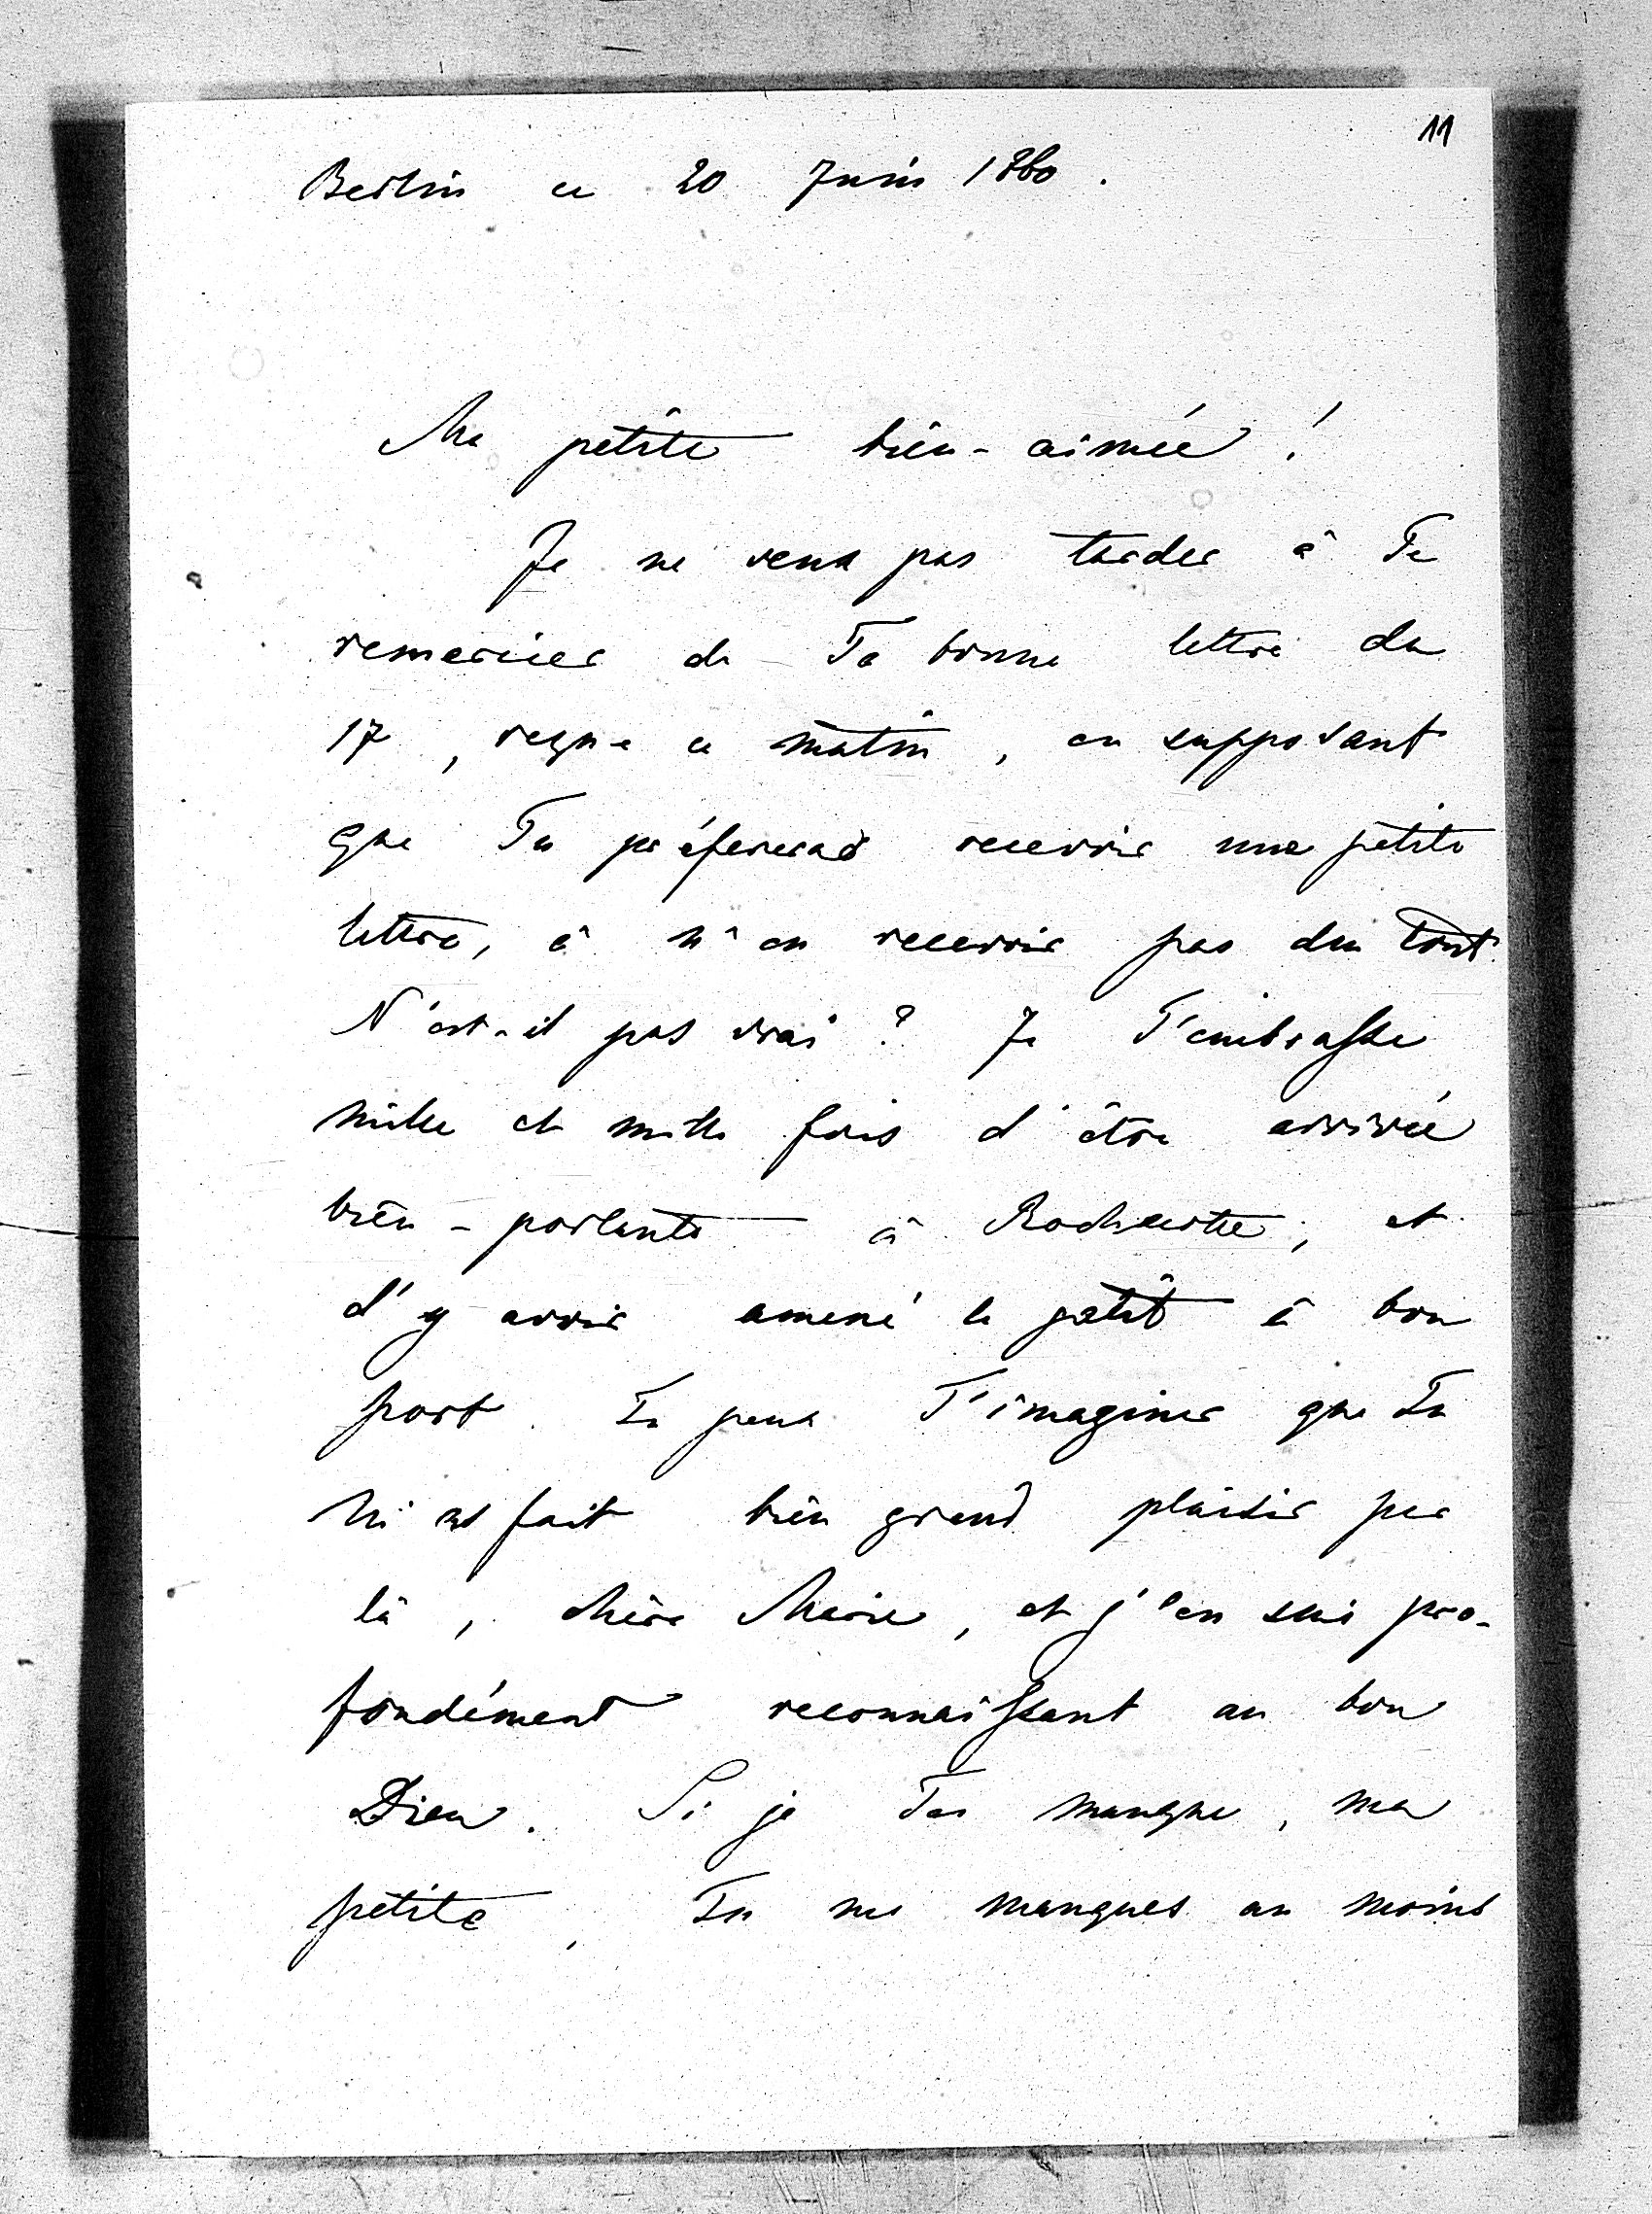 11
Berlin ce 20 Juin 1860.
Ma petite bien-aimée!
Je ne veux pas tarder à Te
remercier de Ta bonne lettre du
17, reçue ce matin, en supposant
que Tu préfereras recevoir une petite
lettre, à n'en recevoir pas du tout.
N'est-il pas vrai? Je T'embrasse
mille et mille fois d'être arrivée
bien-portante à Rochecotte, et
d'y avoir amené le petit à bon
port. Tu peux T'imaginer que Tu
m'as fait bien grand plaisir par
là, chère Marie, et j'en suis pro-
fondément reconnaissant au bon
Dieu. Si je Te manque, ma
petite, Tu me manques au moins